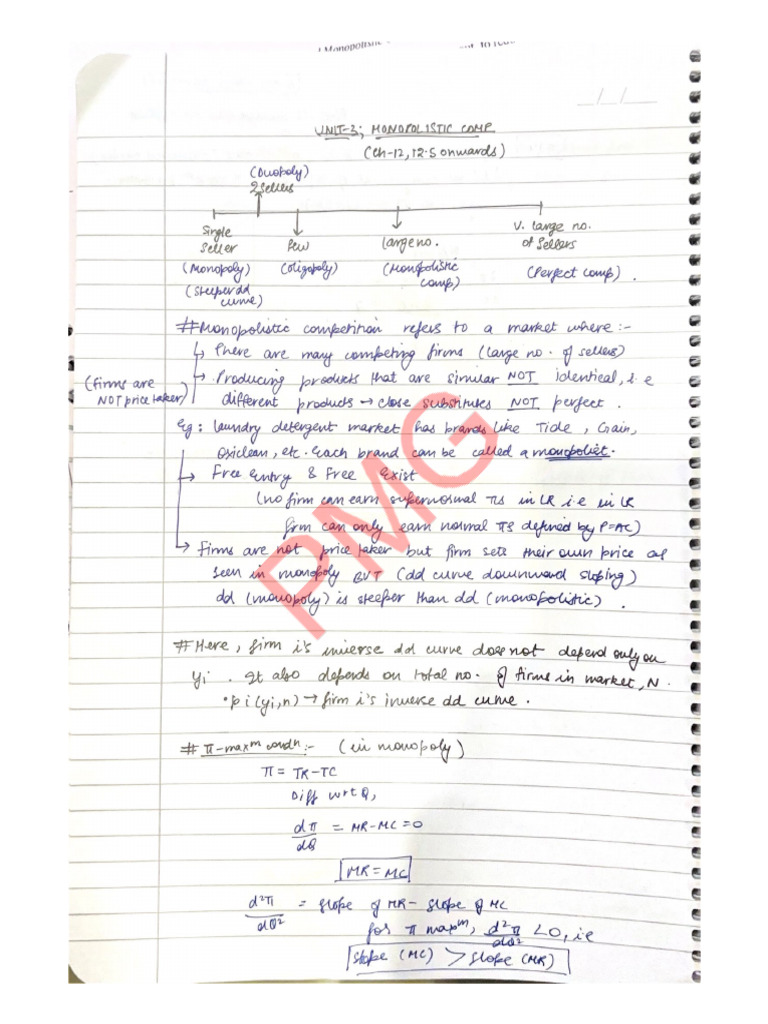 Monopolistic
UNIT-3; MONOPOLISTIC COMP
(Ch-12, 12.5 onwards)
(Duopoly)
2 Sellers
Single Seller
Few
large no.
V. large no. of sellers
(Monopoly)
(Oligopoly)
(Monopolistic comp)
(Perfect comp).
(Steeper dd curve)
# Monopolistic competition refers to a market where :-
↳ There are many competing firms (large no. of sellers)
(firms are NOT price taker)
↳ Producing products that are similar NOT identical, i.e
different products → close substitutes NOT perfect.
Eg: laundry detergent market has brands like Tide, Gain,
Oxiclean, etc. Each brand can be called a monopolist.
→ Free Entry & Free Exist
(no firm can earn supernormal πs in LR i.e in LR
firm can only earn normal πs defined by P=AC)
↳ Firms are not price taker but firm sets their own price as
seen in monopoly BUT (dd curve downward sloping)
dd (monopoly) is steeper than dd (monopolistic).
PMG
# Here, firm i's inverse dd curve does not depend only on
yi. It also depends on total no. of firms in market, N.
• pi(yi,n) → firm i's inverse dd curve.
# π-maxᵐ condn:- (in monopoly)
π = TR-TC
Diff wrt Q,
dπ/dQ = MR-MC=0
MR = MC
d²π/dQ² = slope of MR - slope of MC
for π maxᵐ, d²π/dQ² <0, i.e
slope (MC) > slope (MR)